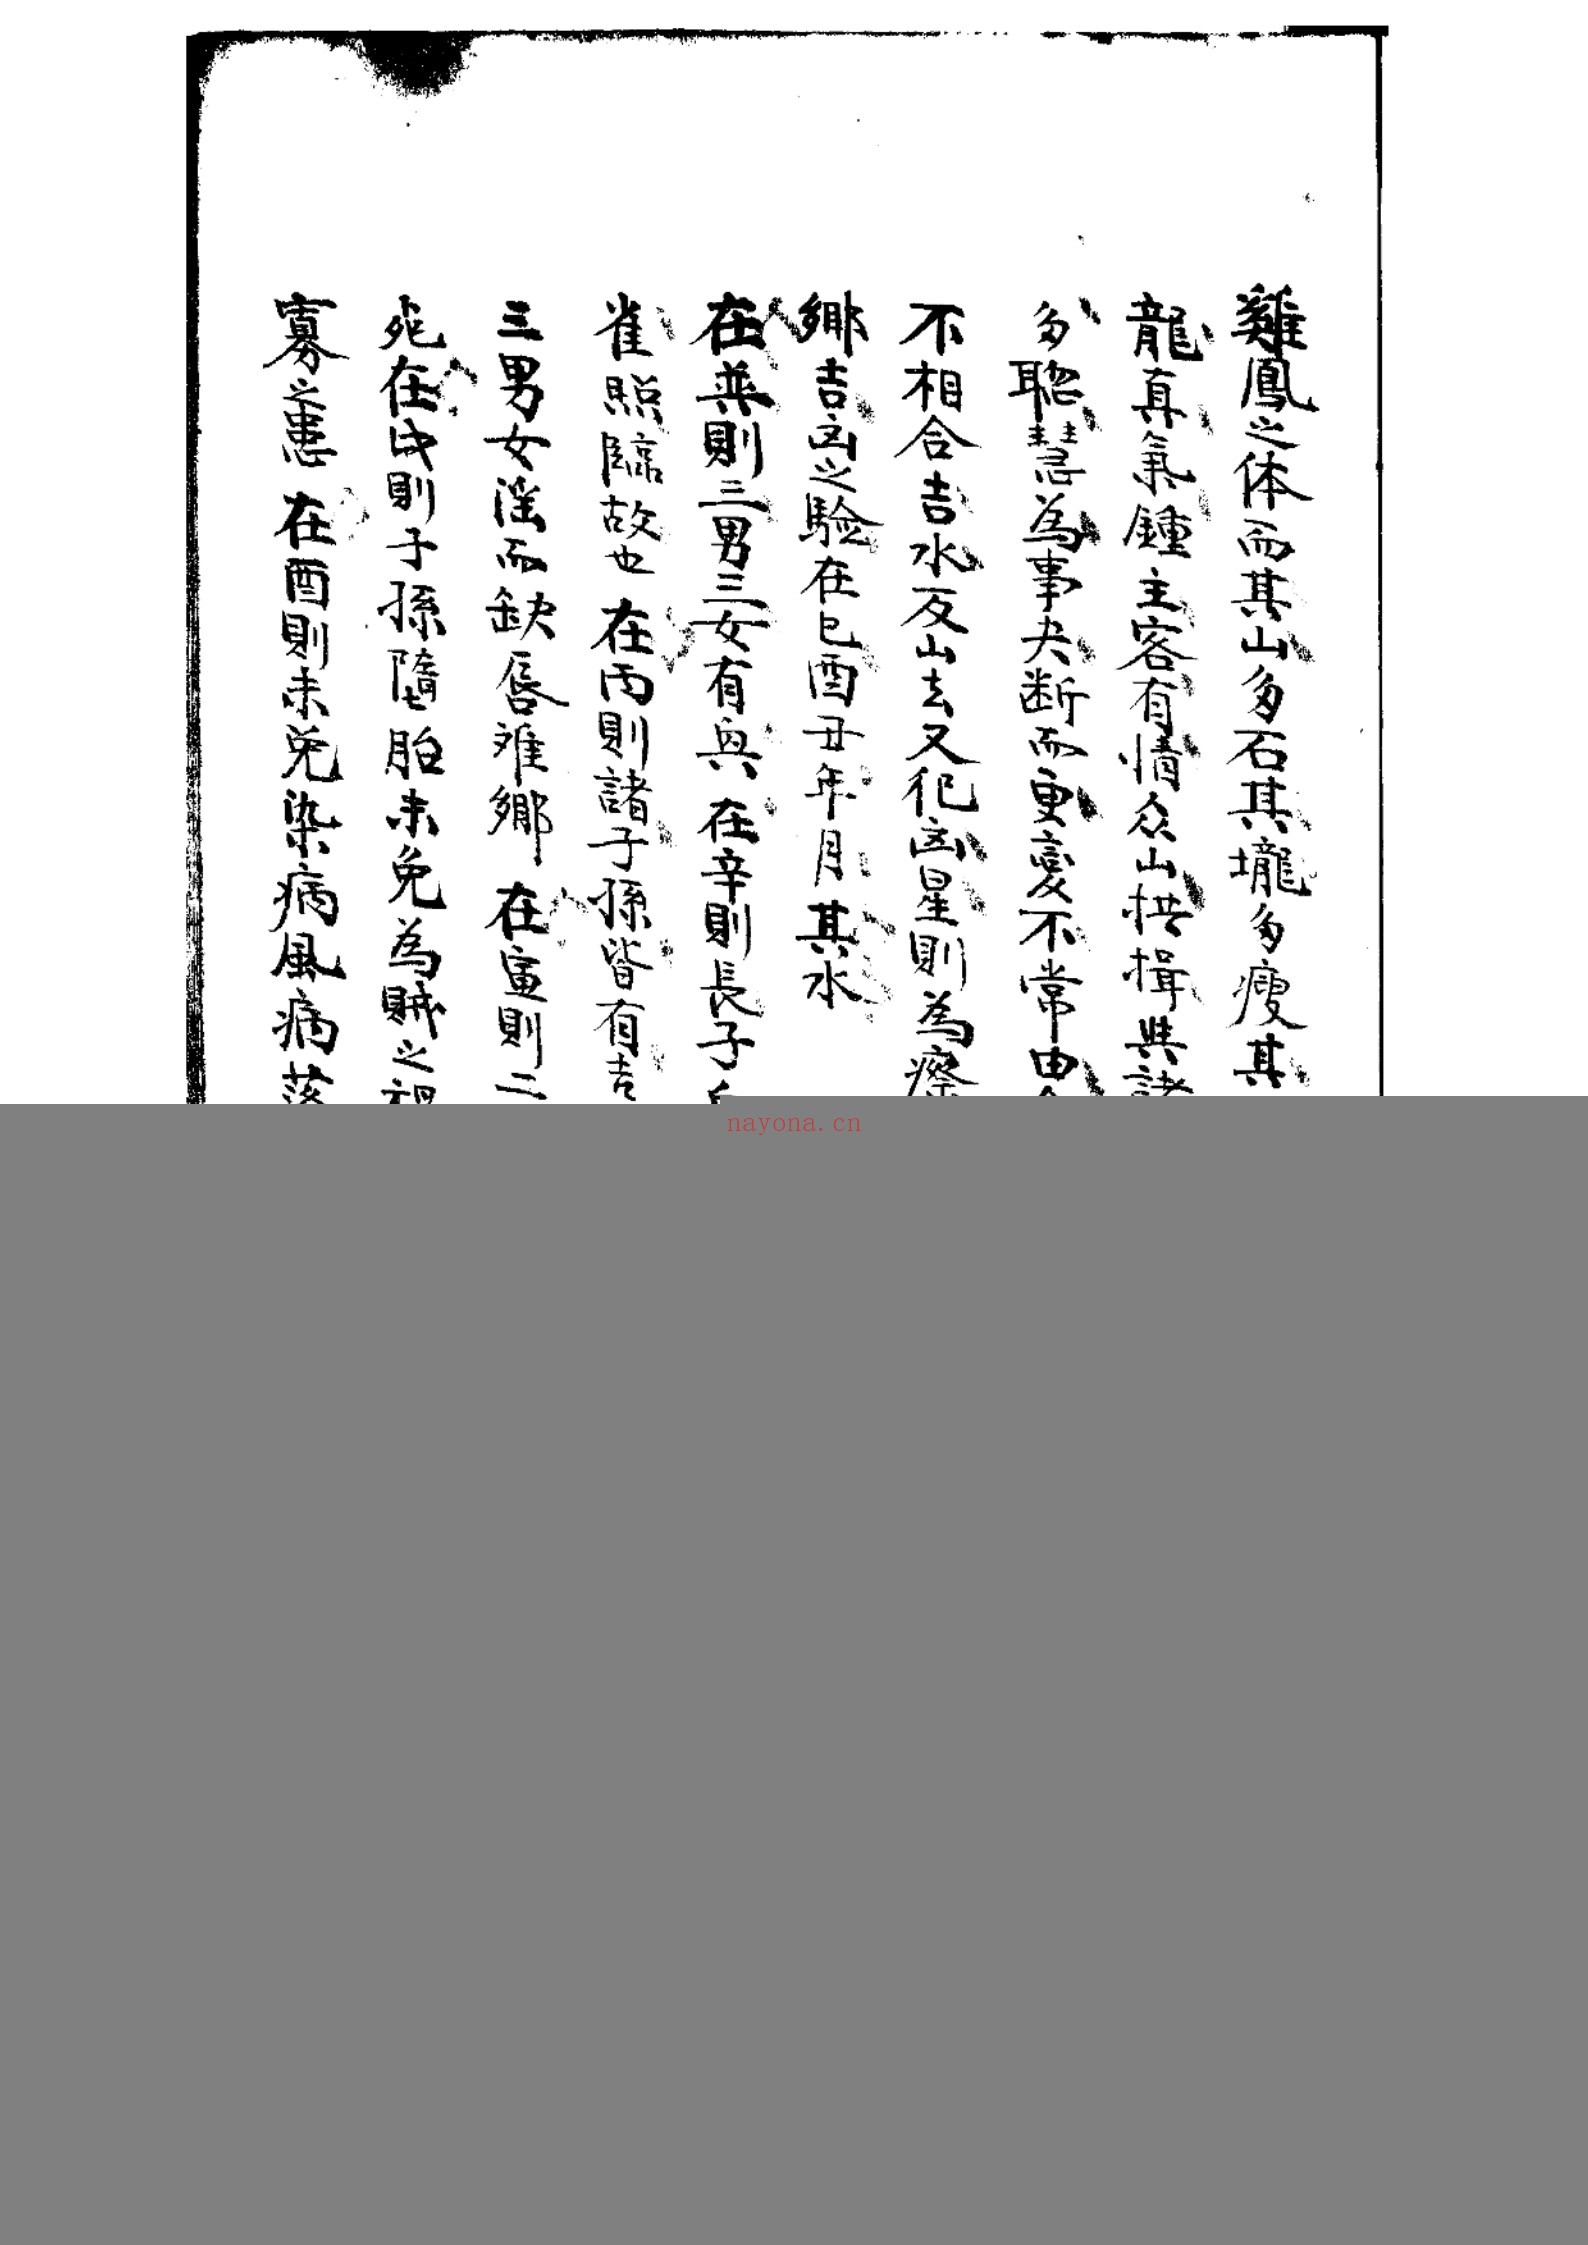 雞鳳之体而其山多石其壠多瘦其
龍真氣鍾主客有情众山拱揖與諸
多聦慧為事夬断而更變不常由
不相合吉水反山去又犯凶星則為瘵
鄉吉凶之驗在巳酉丑年月其水
在巽則三男三女有與在辛則長子
雀照臨故也在丙則諸子孫皆有吉
三男女淫而缺唇难鄉在寅則二
死在戌則子孫墮胎未免為賊之禍
寡之患在酉則未免染病風病落
nayona.cn